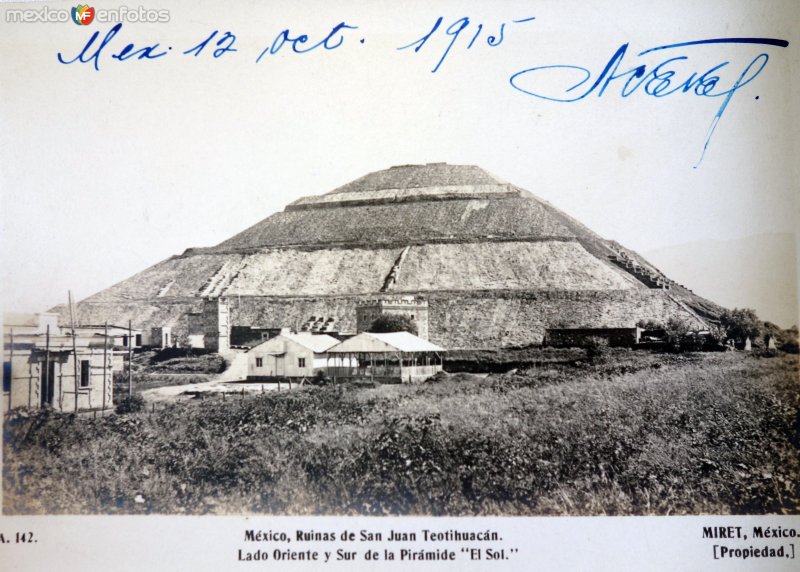 mexico enfotos
Mex. 12 oct. 1915
A. 142.
México, Ruinas de San Juan Teotihuacán.
Lado Oriente y Sur de la Pirámide "El Sol."
MIRET, México.
[Propiedad,]